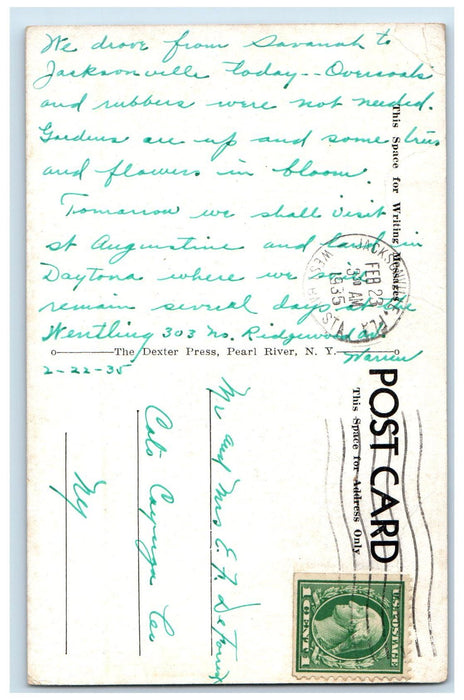 We drove from Savanah to
Jacksonville today -- Overcoats
and rubbers were not needed.
Gardens are up and some trees
and flowers in bloom.
Tomarrow we shall visit
St Augustine and land in
Daytona where we
remain several days at the
Wentling 303 No. Ridgewood Ave
Warren
2-22-35
The Dexter Press, Pearl River, N. Y.
This Space for Writing Messages
JACKSONVILLE, FLA.
FEB 23
330 AM
1935
POST CARD
This Space for Address Only
Mr and Mrs E. F.
Cato Cayuga Co
NY
U.S. POSTAGE
1 CENT 1